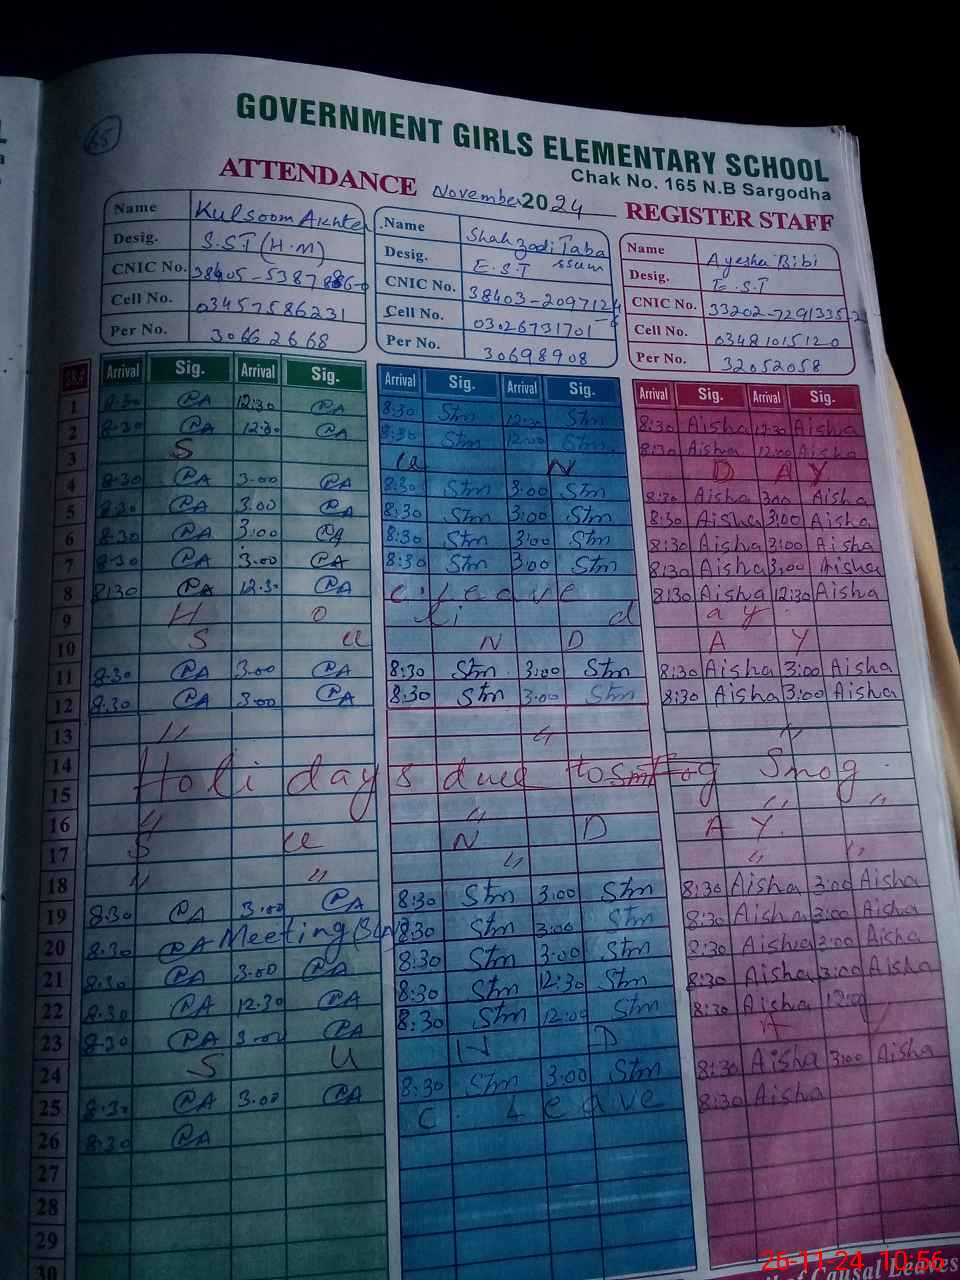 65
GOVERNMENT GIRLS ELEMENTARY SCHOOL
Chak No. 165 N.B Sargodha
ATTENDANCE November 2024 REGISTER STAFF
Name Kulsoom Akhter
Desig. S.S.T (H.M)
CNIC No.
Cell No. 03457586231
Per No. 30662668
Name Shahzadi Taba ssum
Desig. E.S.T
CNIC No. 38403-2097124
Cell No. 03026731701
Per No. 30698908
Name Ayesha Bibi
Desig. E.S.T
CNIC No. 33202-7291335
Cell No. 03481015120
Per No. 32052058
Arrival Sig. Arrival Sig. Arrival Sig. Arrival Sig. Arrival Sig. Arrival Sig.
1 8:30 PA 12:30 PA 8:30 Stm 12:30 Stm 8:30 Aisha 12:30 Aisha
2 8:30 PA 12:30 PA 8:30 Stm 12:00 Stm 8:30 Aisha 12:00 Aisha
3 S U N D A Y
4 8:30 PA 3:00 PA 8:30 Stm 3:00 Stm 8:30 Aisha 3:00 Aisha
5 8:30 PA 3:00 PA 8:30 Stm 3:00 Stm 8:30 Aisha 3:00 Aisha
6 8:30 PA 3:00 PA 8:30 Stm 3:00 Stm 8:30 Aisha 3:00 Aisha
7 8:30 PA 3:00 PA 8:30 Stm 3:00 Stm 8:30 Aisha 3:00 Aisha
8 8:30 PA 12:30 PA C. Leave 8:30 Aisha 12:30 Aisha
9 H o li d ay
10 S u N D A Y
11 8:30 PA 3:00 PA 8:30 Stm 3:00 Stm 8:30 Aisha 3:00 Aisha
12 8:30 PA 3:00 PA 8:30 Stm 3:00 Stm 8:30 Aisha 3:00 Aisha
13 " " "
14 Holi day s due to Smog
15 " " "
16 " "
17 S u N D A Y
18 " " " " "
19 8:30 PA 3:00 PA 8:30 Stm 3:00 Stm 8:30 Aisha 3:00 Aisha
20 8:30 PA Meeting 8:30 Stm 3:00 Stm 8:30 Aisha 3:00 Aisha
21 8:30 PA 3:00 PA 8:30 Stm 3:00 Stm 8:30 Aisha 3:00 Aisha
22 8:30 PA 12:30 PA 8:30 Stm 12:30 Stm 8:30 Aisha 3:00 Aisha
23 8:30 PA 3:00 PA 8:30 Stm 12:00 Stm 8:30 Aisha
24 S U N D A Y
25 8:30 PA 3:00 PA 8:30 Stm 3:00 Stm 8:30 Aisha 3:00 Aisha
26 8:30 PA C. Leave 8:30 Aisha
27
28
29
30
of Causal Leaves
26-11-24 10:56